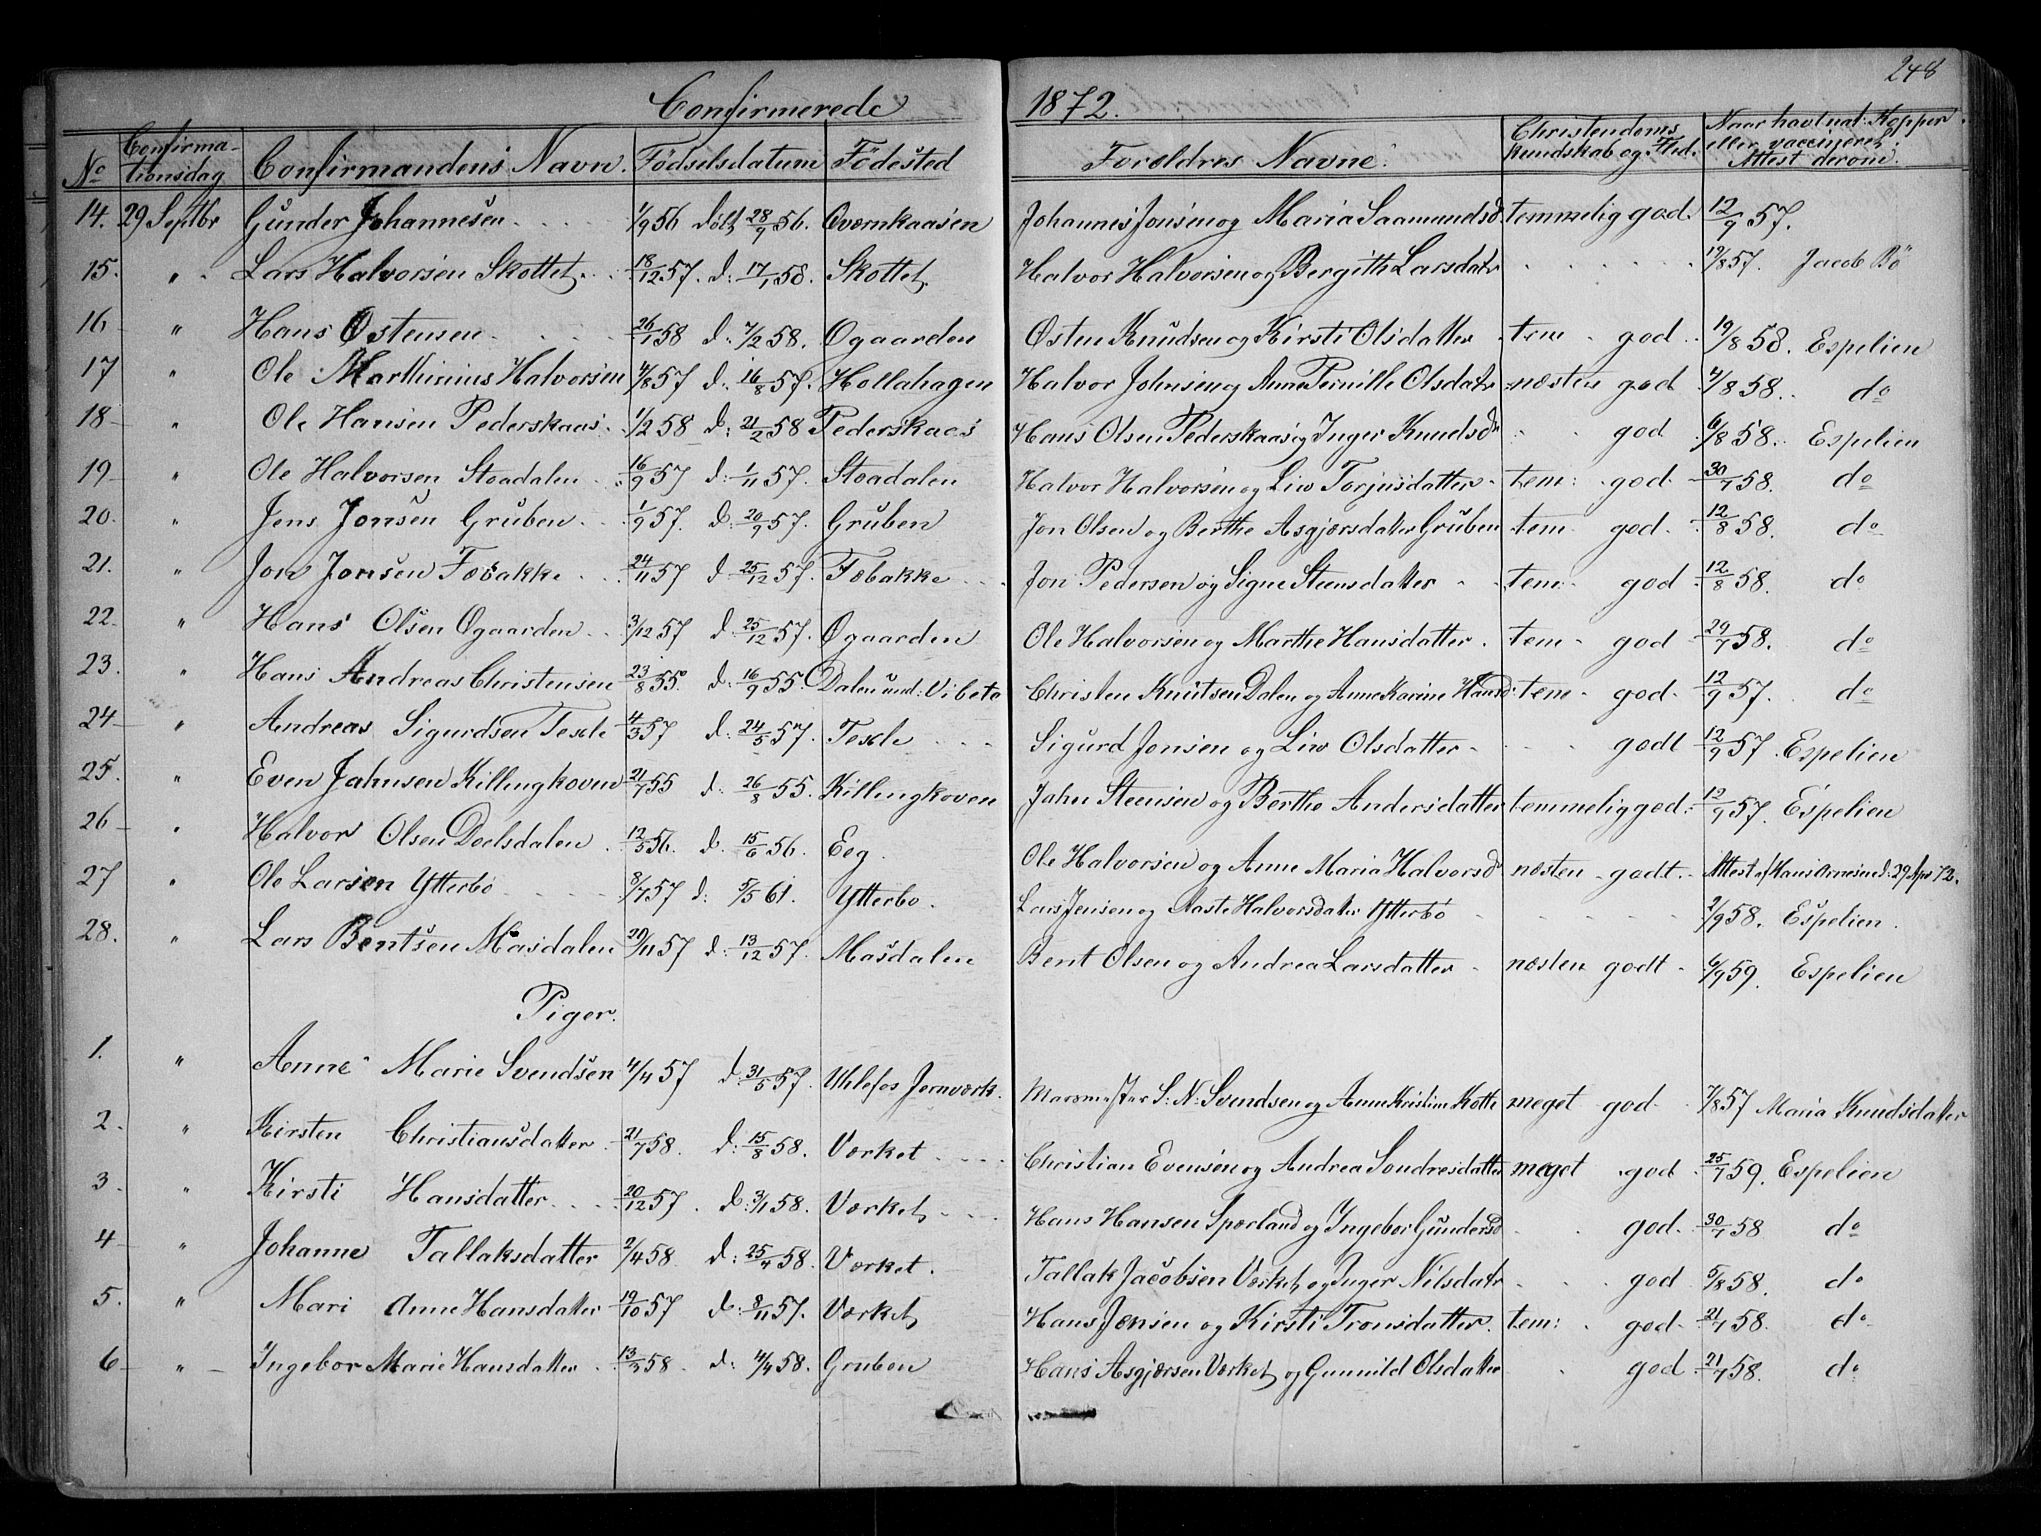 248
Confirmerede 1872.
No Confirma-tionsdag Confirmandens Navn. Födselsdatum Födested Forældres Navne. Christendoms Kundskab og Flid. Naar havt nat: Kopper eller vaccineret. Attest derom.
14. 29 Septbr Gunder Johannesen 1/9 56 döbt 28/9 56. Oværnkaasen Johannes Jonsen og Maria Saamundsd. temmelig god. 12/9 57.
15. " Lars Halvorsen Skottet 18/12 57. d: 17/1 58. Skottet Halvor Halvorsen og Bergith Larsdatr 19/8 57. Jacob Bö
16 " Hans Østensen 26/1 58 d: 7/2 58. Øgaarden Østen Knudsen og Kirsti Olsdatter tem god 19/8 58. Espelien
17 " Ole Marthinius Halvorsen 4/8 57 d. 16/8 57. Hollahagen Halvor Johnsen og Anne Pernille Olsdatr næsten god 4/8 58. do
18 " Ole Hansen Pederskaas 1/2 58 d: 21/2 58 Pederskaas Hans Olsen Pederskaas og Inger Knudsdr god 6/8 58. Espelien
19 " Ole Halvorsen Stoadalen 16/9 57 d: 1/11 57. Stoadalen Halvor Halvorsen og Liv Torjusdatter tem: god 30/7 58. do
20. " Jens Jonsen Gruben 1/9 57. d: 20/9 57. Gruben Jon Olsen og Berthe Asgjærsdatter Gruben tem god 12/8 58. do
21. " Jon Jonsen Fæbakke 24/11 57 d 25/12 57. Fæbakke Jon Pedersen og Signe Steensdatter tem god 12/8 58. do
22. " Hans Olsen Øgaarden 3/12 57 d 25/12 57. Øgaarden Ole Halvorsen og Marthe Hansdatter tem god 29/7 58. do
23. " Hans Andreas Christensen 23/8 55. d: 16/9 55. Dalen und: Vibeto Christen Knutsen Dalen og Anne Karine Hansd tem god 12/9 57. do
24 " Andreas Sigurdsen Texle 4/3 57 d: 24/5 57. Texle Sigurd Jonsen og Liv Olsdatter godt 12/9 57. Espelien
25. " Even Jahnsen Killingkoven 21/7 55 d. 26/8 55. Killingkoven Jahn Steensen og Berthe Andersdatter temmelig god 12/9 57. Espelien
26 " Halvor Olsen Doelsdalen 12/5 56. d. 15/6 56. Eeg. Ole Halvorsen og Anne Maria Halvorsd næsten godt. Attest af Hans Arnesen d. 29 Apr 72.
27 " Ole Larsen Ytterbö 8/7 57 d: 5/5 61. Ytterbö. Lars Jensen og Aaste Halvorsdatter Ytterbö 2/9 58. Espelien.
28. " Lars Bentsen Masdalen 20/11 57 d: 13/12 57. Masdalen Bent Olsen og Andrea Larsdatter næsten godt 6/9 59. Espelien
Piger.
1. " Anne Marie Svendsen 4/4 57 d: 31/5 57. Uhlefos Jernværk. Masmester S. N. Svendsen og Anne Kristine Kotte meget god 7/8 57 Maria Knudsdatter
2. " Kirsten Christiansdatter 21/7 58. d: 15/8 58. Værket Christian Evensen og Andrea Sondresdatter meget god 25/7 59. Espelien
3. " Kirsti Hansdatter 20/12 57. d: 3/1 58. Værket Hans Hansen Sporland og Ingebor Gundersd god 30/7 58 do
4 " Johanne Tallaksdatter 2/4 58. d: 25/4 58. Værket. Tallak Jacobsen Værket og Inger Nilsdatr god 5/8 58. do
5. " Mari Anne Hansdatter 19/10 57 d: 8/11 57. Værket Hans Jensen og Kirsti Tronsdatter tem: god 21/7 58. do
6 " Ingebor Marie Hansdatter 13/3 58 d: 4/4 58. Gruben Hans Asgjærsen Værket og Gunnild Olsdatter god 21/7 58. do